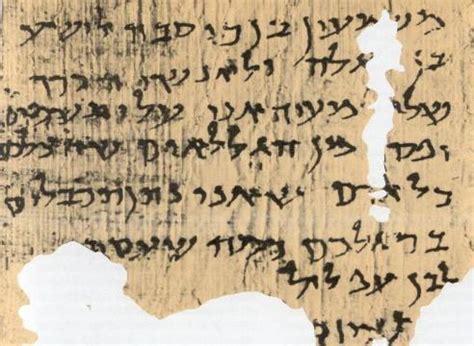 משמעון בן כוסבה לישע
בן גלגלה ולאנשי הכרך
מעיד אני עלי תשמים
מן הגללאים שהצלכם
כל אדם שאני נותן תכבלים
ברגלכם כמה שעסת
לבן עפלול